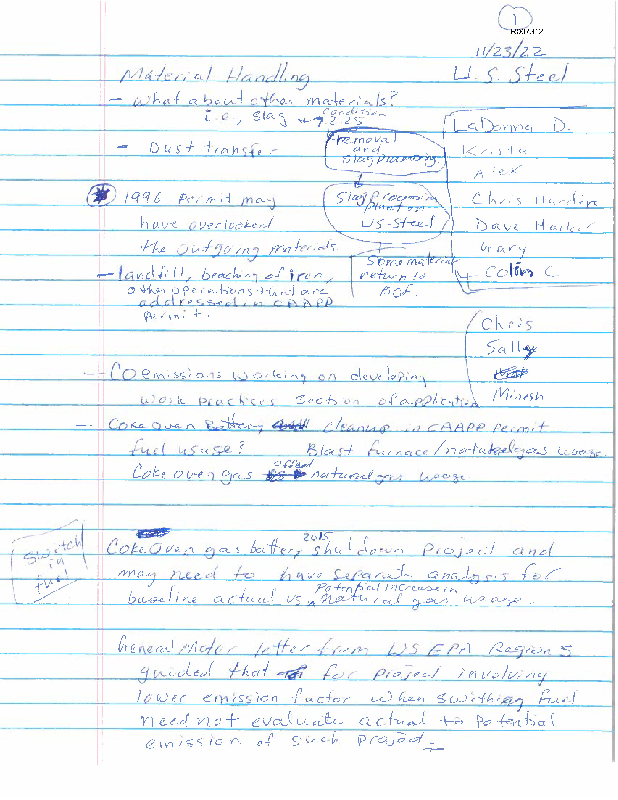 1
R007412
11/23/22
Material Handling
U.S. Steel
- What about other materials?
i.e., slag → 7.2.25
Condition
- Dust transfer
removal and slag processing
Slag Processing
US-Steel
Some material return to BOF.
LaDonna D.
Krista
Alex
Chris Hardin
Dave Hacker
Gary
Colin C.
Chris
Sally
Minesh
* 1996 Permit may
have overlooked
the outgoing materials
- landfill, beaching of iron,
other operations are
addressed in CAAPP
permit.
- CO emissions working on developing
work practices section of application
- Coke oven battery cleanup in CAAPP permit
fuel ususe? Blast furnace/natural gas usage.
Coke oven gas offset natural gas usage
Switch in fuel
Coke oven gas battery 2015 shutdown project and
may need to have separate analysis for
baseline actual vs. Potential increase in natural gas usage.
General Motor letter from USEPA Region 5
guided that for project involving
lower emission factor when swithing fuel
need not evaluate actual to potential
emission of such project.